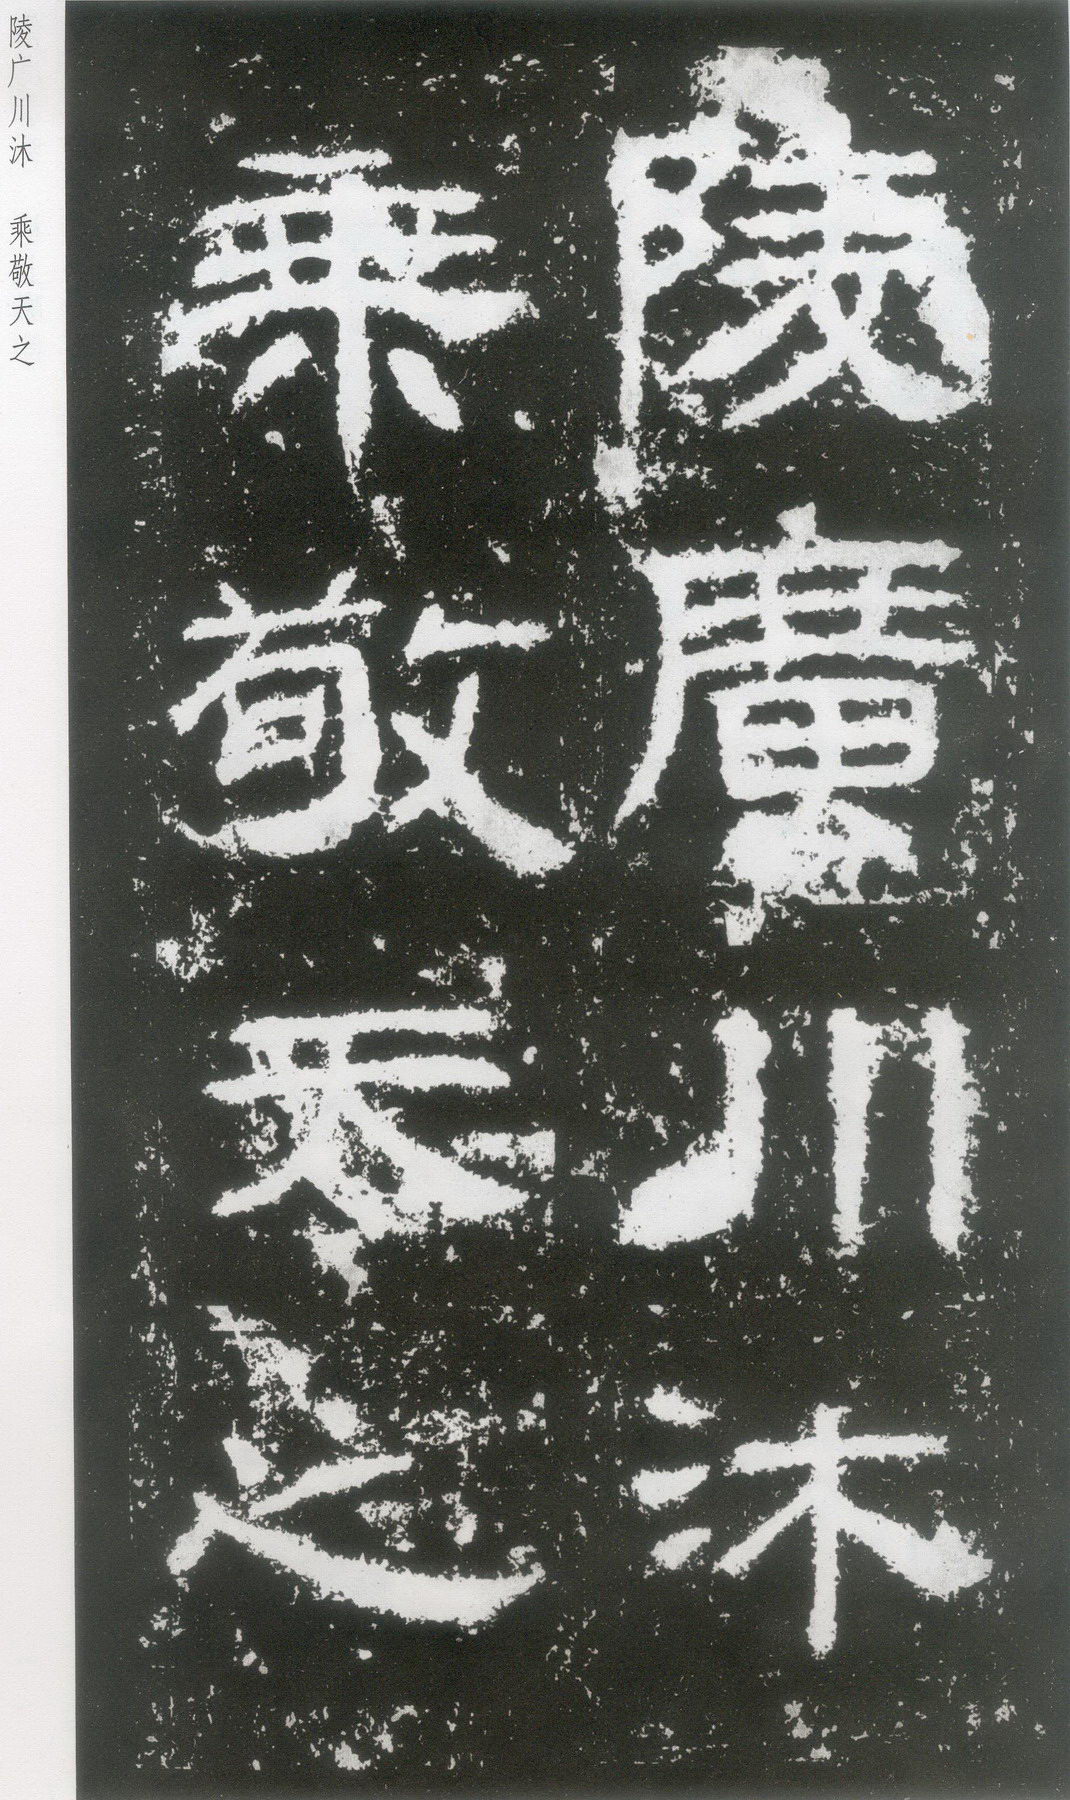 陵廣川沐
乘敬天之
陵广川沐　乘敬天之